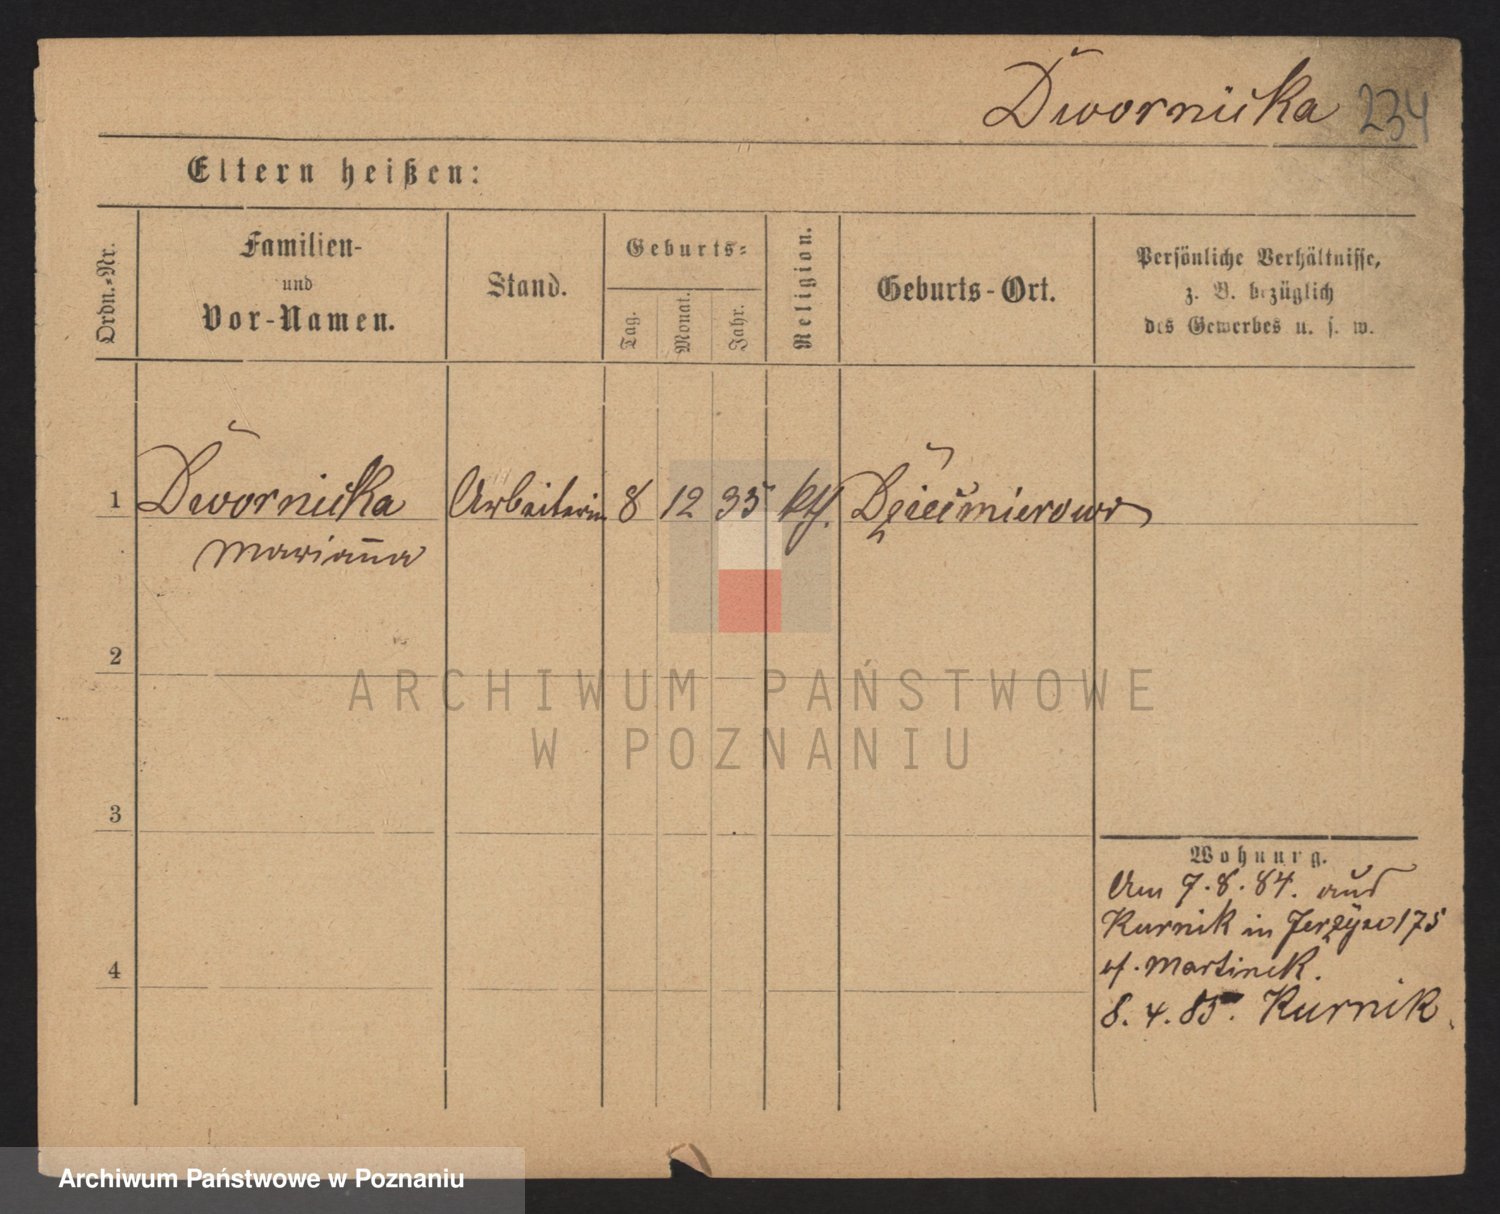 Dwornicka 234
Eltern heißen:
Ordn.-Nr.
Familien-
und
Vor-Namen.
Stand.
Geburts-
Tag.
Monat.
Jahr.
Religion.
Geburts-Ort.
Persönliche Verhältnisse,
z. B. bezüglich
des Gewerbes u. s. w.
1 Dwornicka Arbeiterin 8 12 35 kth.
Marianna
2
3
4
Wohnung.
Am 7.8.84. aus
Kurnik in 175
8.4.85. Kurnik
ARCHIWUM PAŃSTWOWE
W POZNANIU
Archiwum Państwowe w Poznaniu